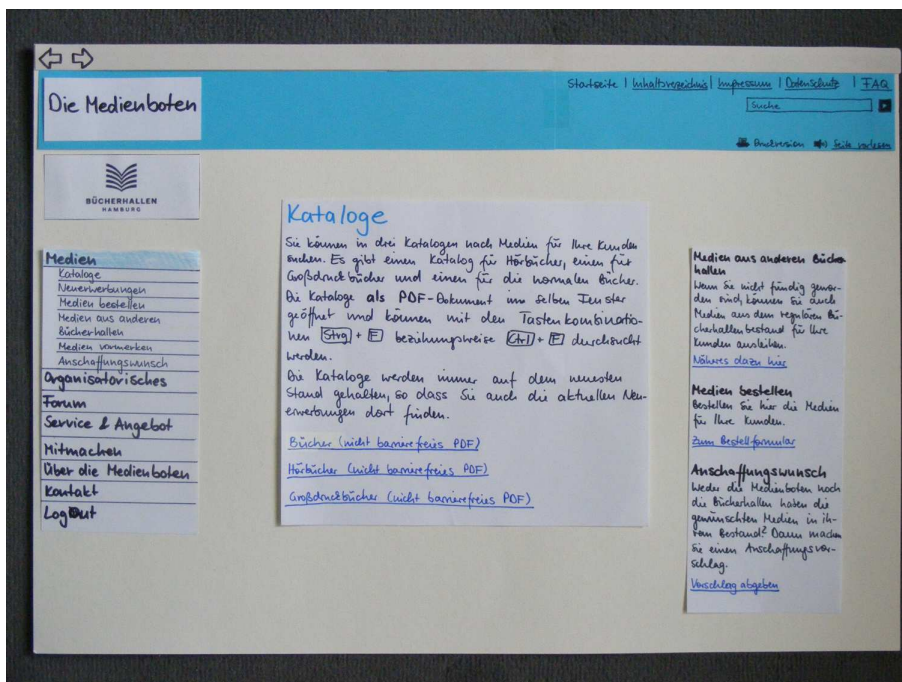 Die Medienboten
Startseite | Inhaltsverzeichnis | Impressum | Datenschutz | FAQ
Suche
Druckversion Seite vorlesen
BÜCHERHALLEN
HAMBURG
Medien
Kataloge
Neuerwerbungen
Medien bestellen
Medien aus anderen
Bücherhallen
Medien vormerken
Anschaffungswunsch
Organisatorisches
Forum
Service & Angebot
Mitmachen
Über die Medienboten
Kontakt
Logout
Kataloge
Sie können in drei Katalogen nach Medien für Ihre Kunden
suchen. Es gibt einen Katalog für Hörbücher, einen für
Großdruckbücher und einen für die normalen Bücher.
Die Kataloge als PDF-Dokument im selben Fenster
geöffnet und können mit den Tastenkombinatio-
nen Strg + F beziehungsweise Ctrl + F durchsucht
werden.
Die Kataloge werden immer auf dem neuesten
Stand gehalten, so dass Sie auch die aktuellen Neu-
erwerbungen dort finden.
Bücher (nicht barrierefreies PDF)
Hörbücher (nicht barrierefreies PDF)
Großdruckbücher (nicht barrierefreies PDF)
Medien aus anderen Bücher
hallen
Wenn Sie nicht fündig gewor-
den sind, können Sie auch
Medien aus dem regulären Bü-
cherhallenbestand für Ihre
Kunden ausleihen.
Näheres dazu hier
Medien bestellen
Bestellen Sie hier die Medien
für Ihre Kunden.
Zum Bestellformular
Anschaffungswunsch
Weder die Medienboten noch
die Bücherhallen haben die
gewünschten Medien in ih-
rem Bestand? Dann machen
Sie einen Anschaffungsvor-
schlag.
Vorschlag abgeben